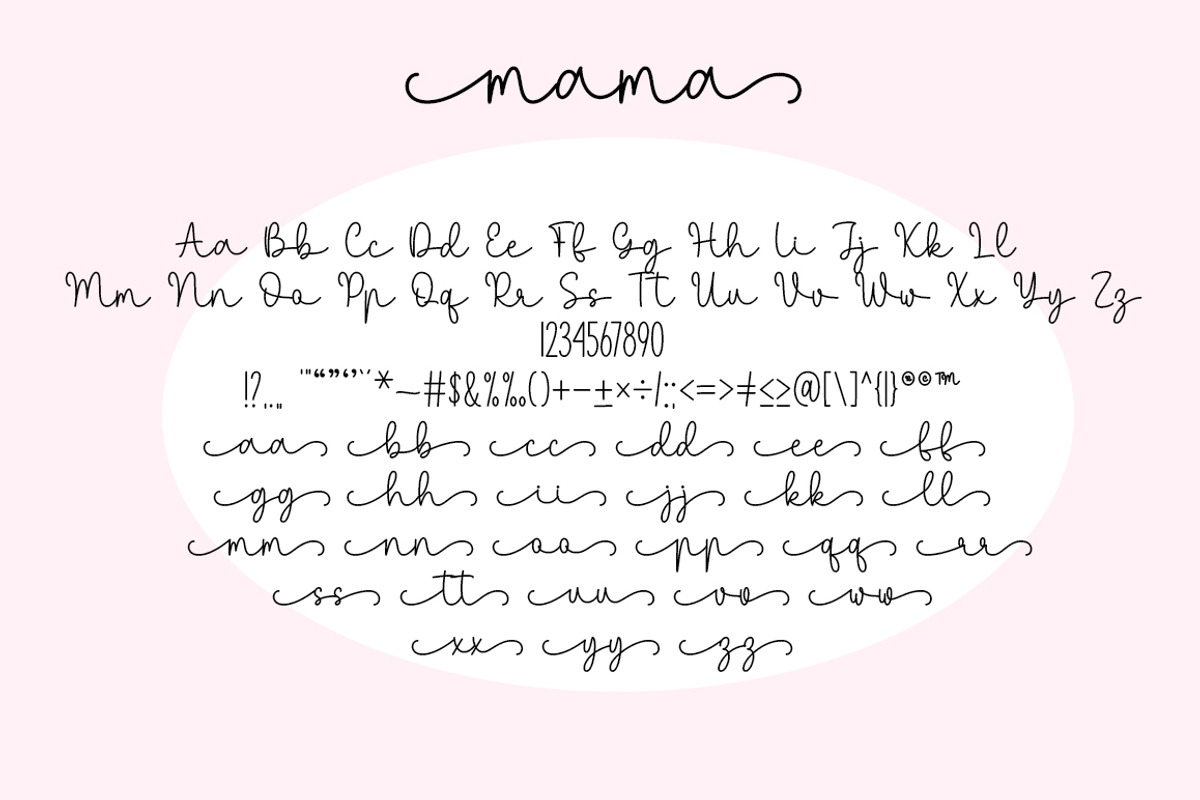 mama
Aa Bb Cc Dd Ee Ff Gg Hh Ii Jj Kk Ll
Mm Nn Oo Pp Qq Rr Ss Tt Uu Vv Ww Xx Yy Zz
1234567890
!?.,…„ '"“”‘’`´*–—#$&%‰()+−±×÷/:;<=>≠≤≥@[\]^{|}®©™
aa bb cc dd ee ff
gg hh ii jj kk ll
mm nn oo pp qq rr
ss tt uu vv ww
xx yy zz